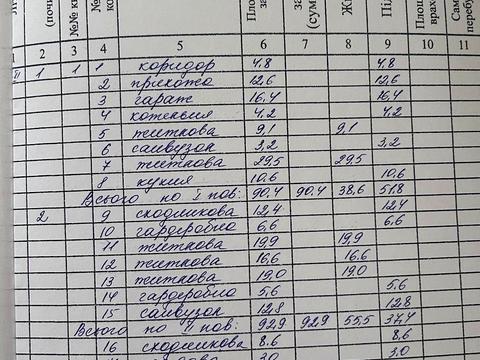 (почи
№№ кв
за
за
(сум
Жи
Під
Площ
врахо
Сам
перебу
1 2 3 4 5 6 7 8 9 10 11
II 1 1 1 коридор 4,8 4,8
2 прихожа 12,6 12,6
3 гараж 16,4 16,4
4 котельня 4,2 4,2
5 житкова 9,1 9,1
6 санвузол 3,2 3,2
7 житкова 29,5 29,5
8 кухня 10,6 10,6
Всього по I пов: 90,4 90,4 38,6 51,8
2 9 сходникова 12,4 12,4
10 гардеробна 6,6 6,6
11 житкова 19,9 19,9
12 житкова 16,6 16,6
13 житкова 19,0 19,0
14 гардеробна 5,6 5,6
15 санвузол 12,8 12,8
Всього по II пов: 92,9 92,9 55,5 37,4
16 сходникова 8,6 8,6
3,0 3,0